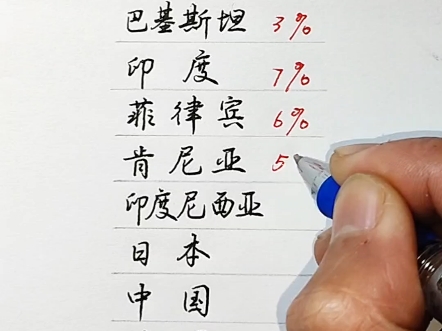 巴基斯坦 3%
印度 7%
菲律宾 6%
肯尼亚 5
印度尼西亚
日本
中国